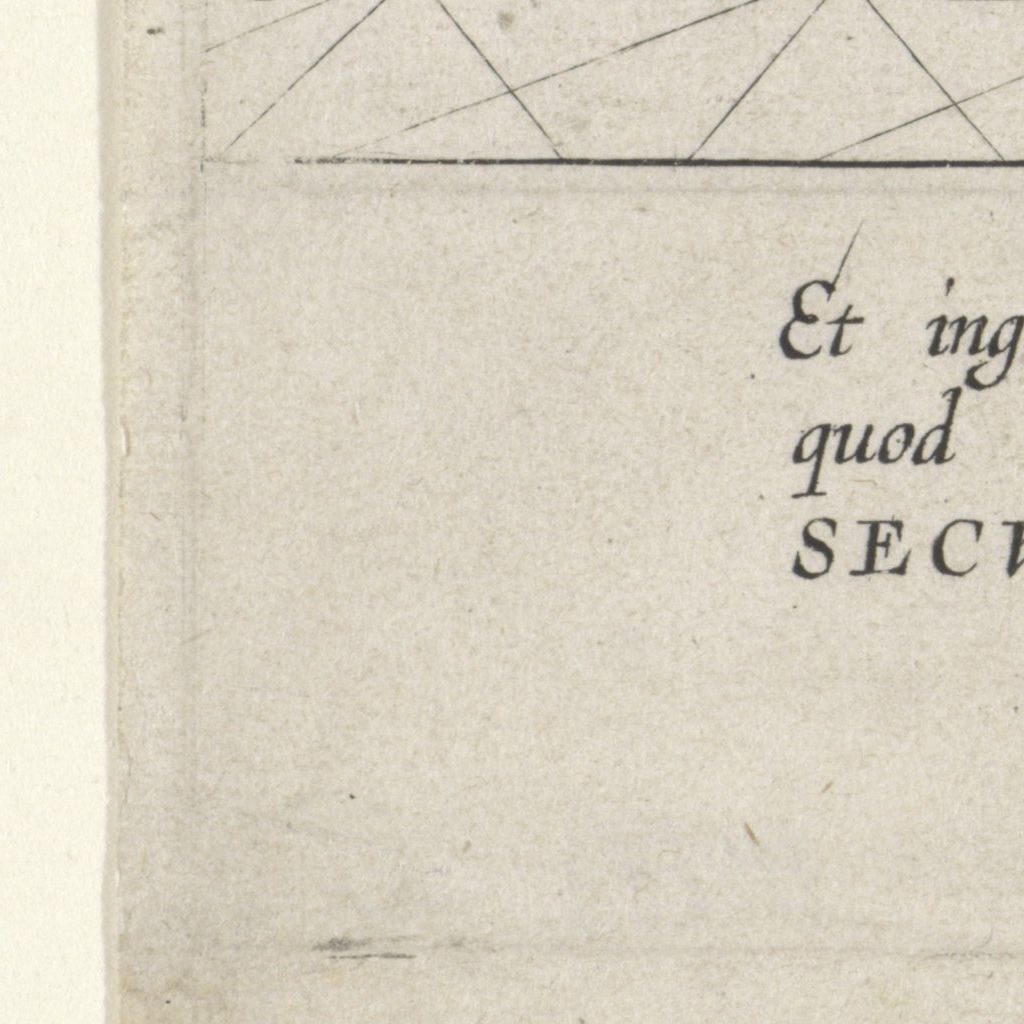 Et ing
quod
SECV